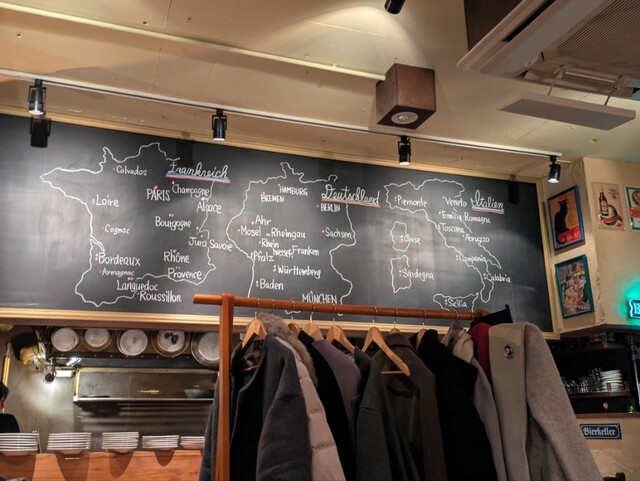 Frankreich
Calvados
PARIS
Champagne
Loire
Alsace
Cognac
Bourgogne
Jura Savoie
Bordeaux
Rhône
Armagnac
Provence
Languedoc
Roussillon
Deutschland
HAMBURG
BREMEN
BERLIN
Ahr
Mosel
Rheingau
Sachsen
Rhein
hessen
Franken
Pfalz
Württemberg
Baden
MÜNCHEN
Italien
Piemonte
Veneto
Emilia Romagna
Toscana
Abruzzo
Corse
Campania
Sardegna
Calabria
Sicilia
Bierkeller